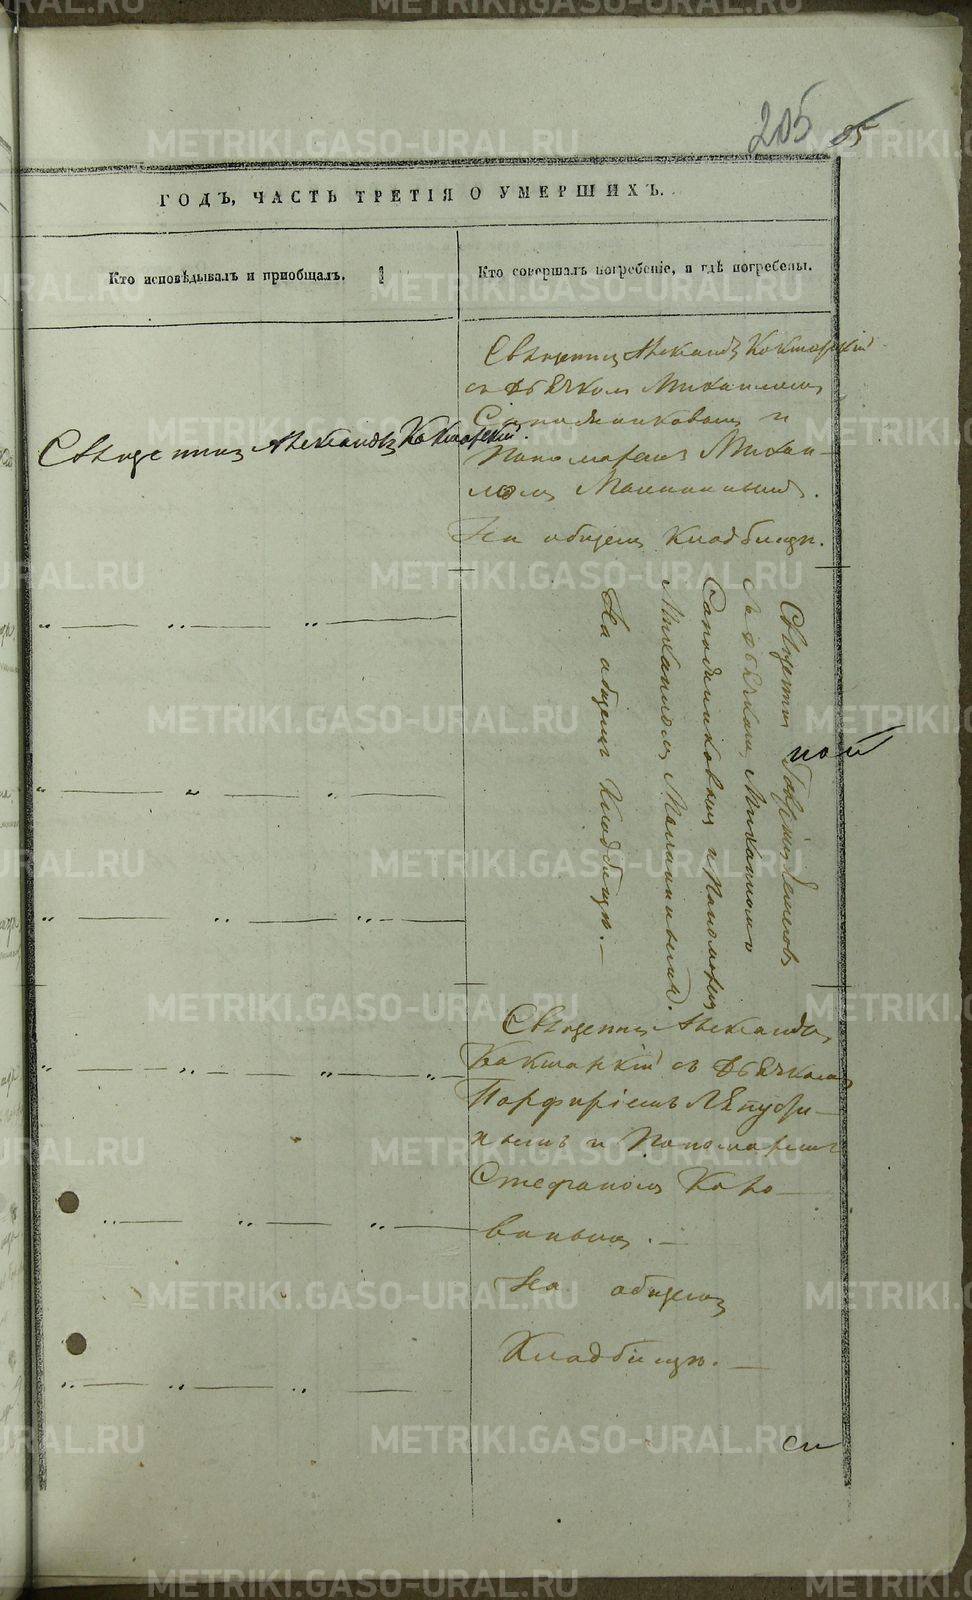 205
85
ГОДЪ, ЧАСТЬ ТРЕТІЯ О УМЕРШИХЪ.
Кто исповѣдывалъ и пріобщалъ.
Кто совершалъ погребеніе, и гдѣ погребены.
Священникъ Александръ Кокшарскій.
Священникъ Александръ Кокшарскій
съ Дьячкомъ Михаиломъ
Сапожниковымъ и
Пономаремъ Михаи-
ломъ Маминымъ.
На общемъ Кладбищѣ.
Священникъ
съ Дьячкомъ Михаиломъ
Сапожниковымъ и Пономаремъ
Михаиломъ Маминымъ.
На общемъ Кладбищѣ.—
Священникъ Александръ
Кокшарскій съ Дьячкомъ
Порфиріемъ
и Пономаремъ
Стефаномъ
На общемъ
Кладбищѣ.—
METRIKI.GASO-URAL.RU